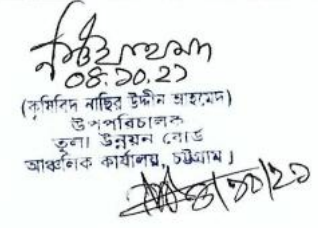 08.10.21
(কৃষিবিদ নাছির উদ্দীন আহমেদ)
উপপরিচালক
তুলা উন্নয়ন বোর্ড
আঞ্চলিক কার্যালয়, চট্টগ্রাম।